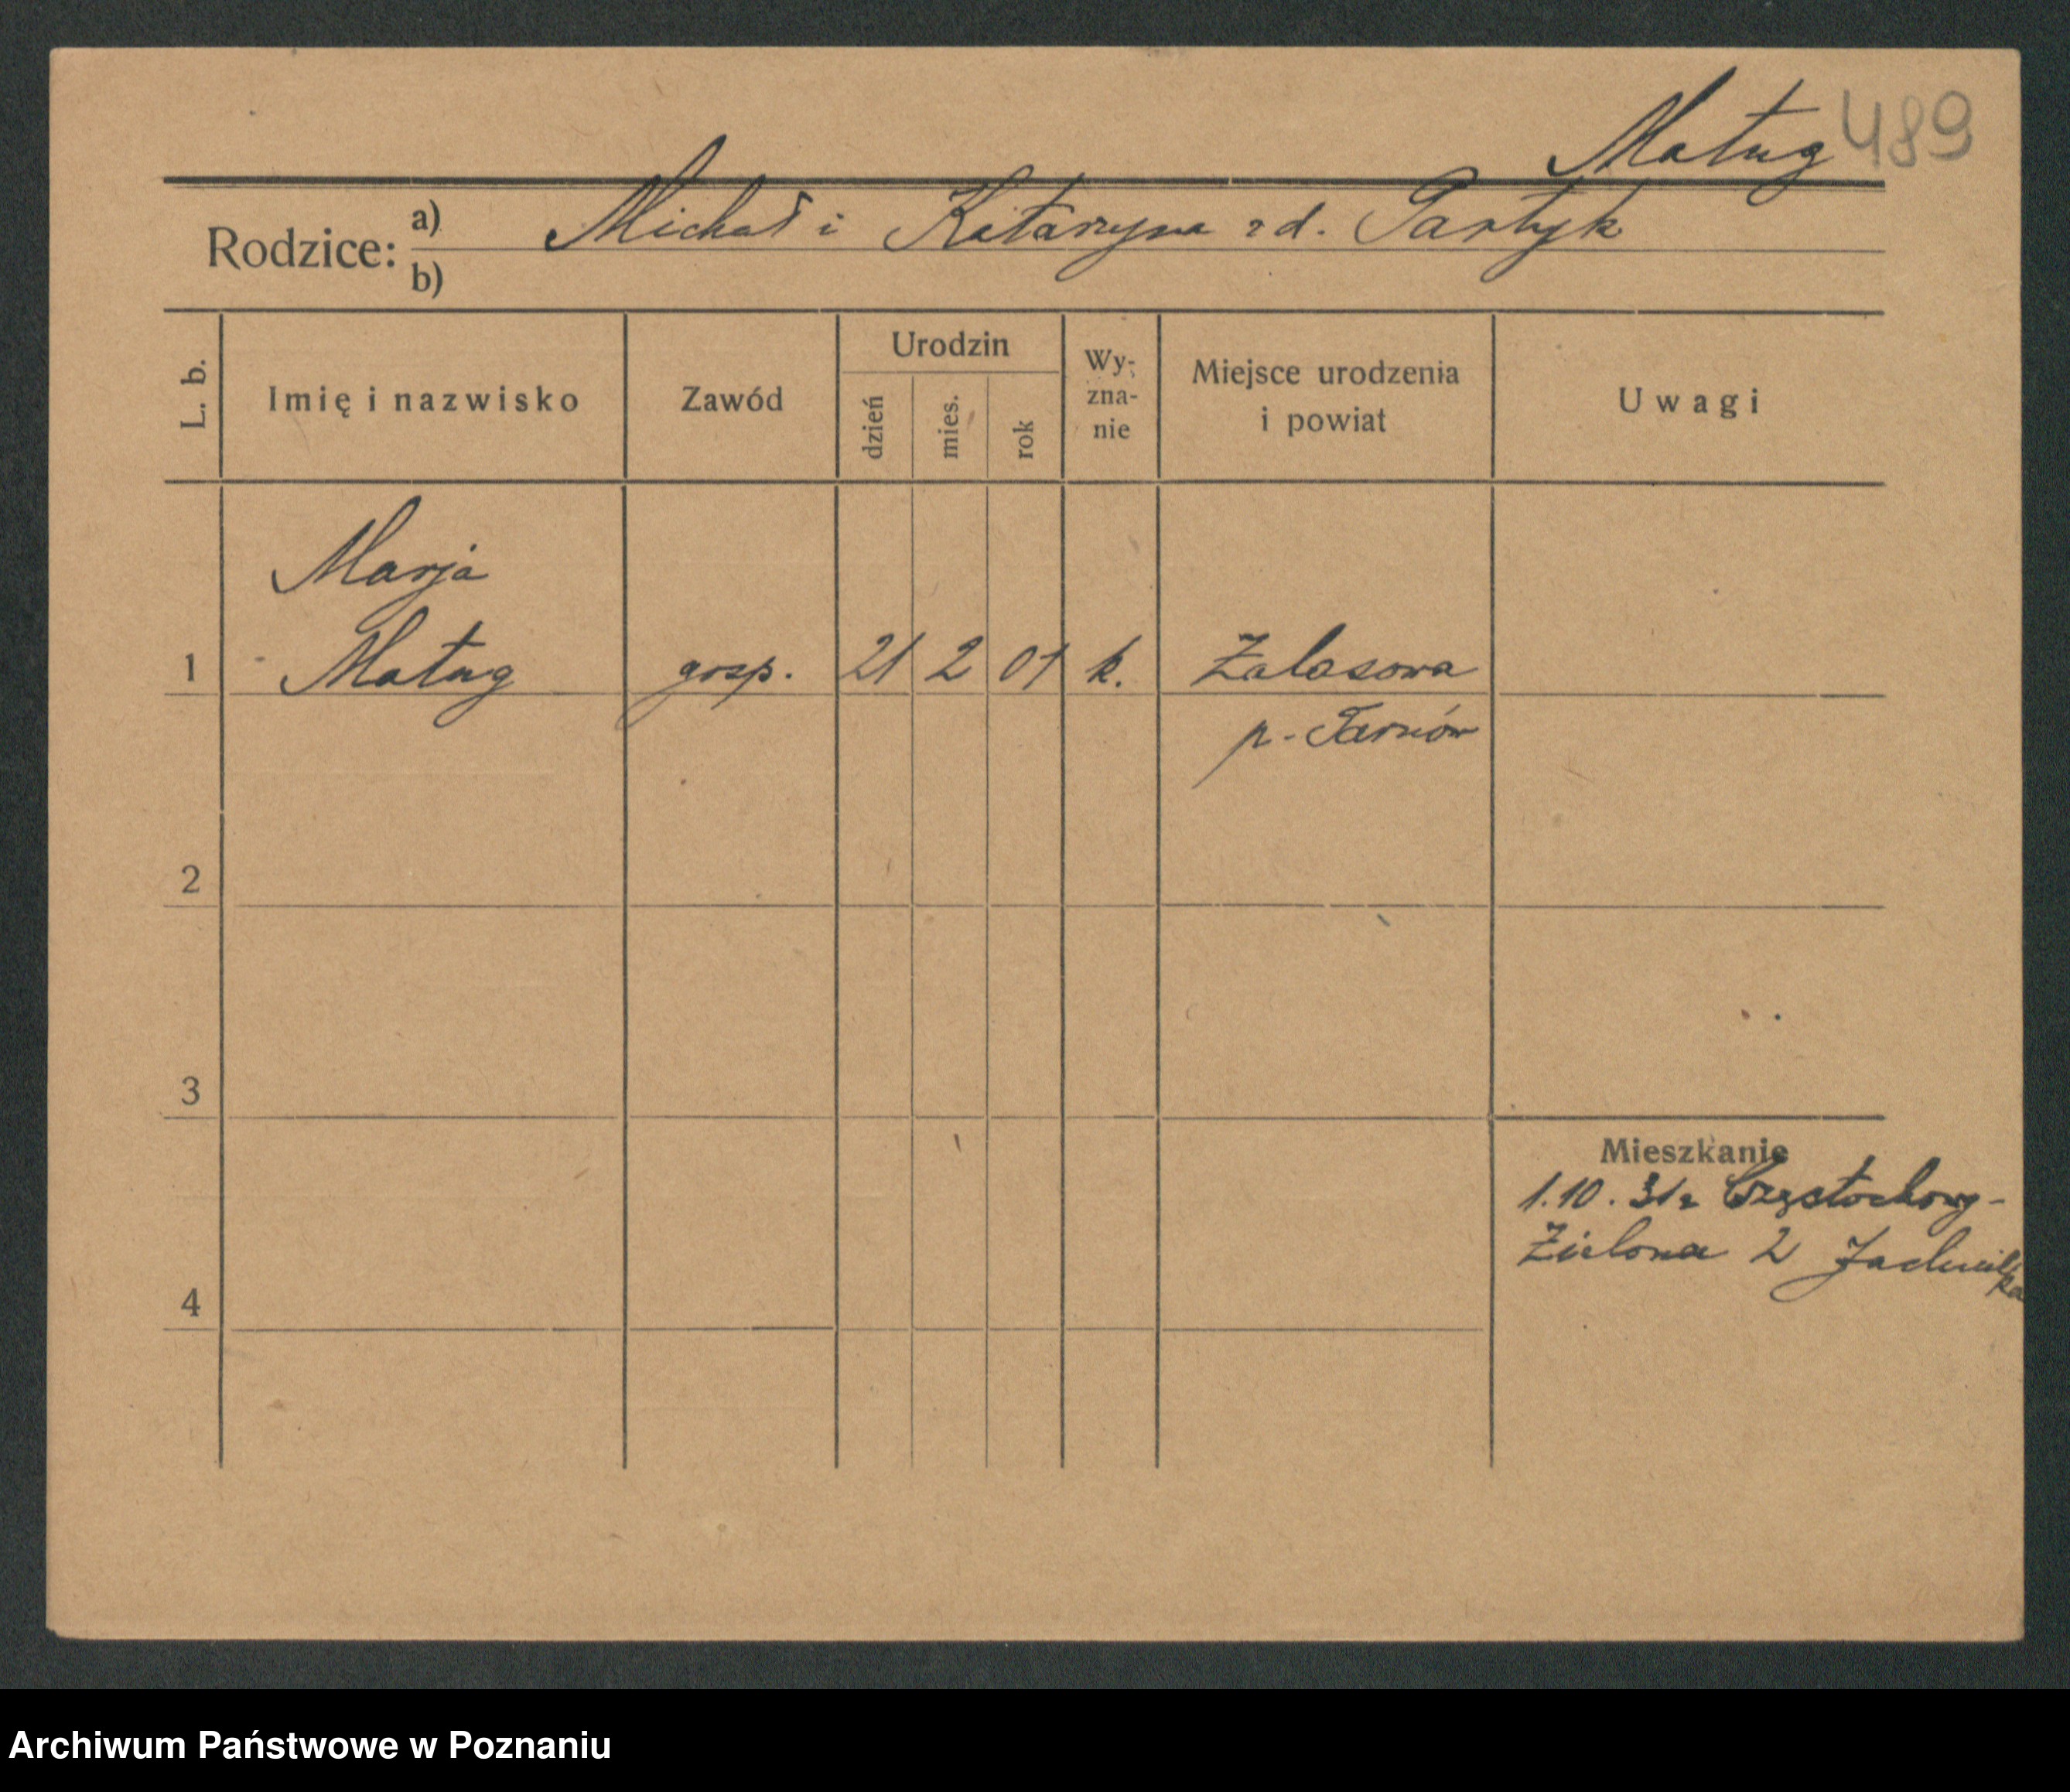 Matug 489
Rodzice: a) Michał i Katarzyna zd. Partyk
b)
L. b. Imię i nazwisko Zawód Urodzin dzień mies. rok Wy-zna-nie Miejsce urodzenia i powiat Uwagi
Marja
1 Matug gosp. 21 2 01 k. Zalasowa
p. Tarnów
2
3
Mieszkanie
1.10.31 z Częstochowy-
Zielona 2
4
Archiwum Państwowe w Poznaniu